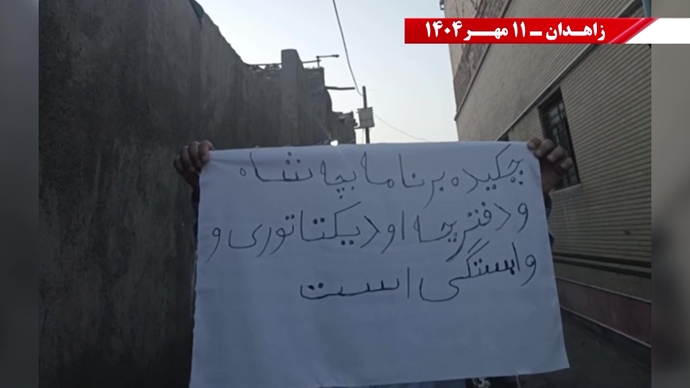 زاهدان ـ ۱۱ مهر ۱۴۰۴
چکیده برنامه بچه شاه
و دفترچه او دیکتاتوری و
وابستگی است